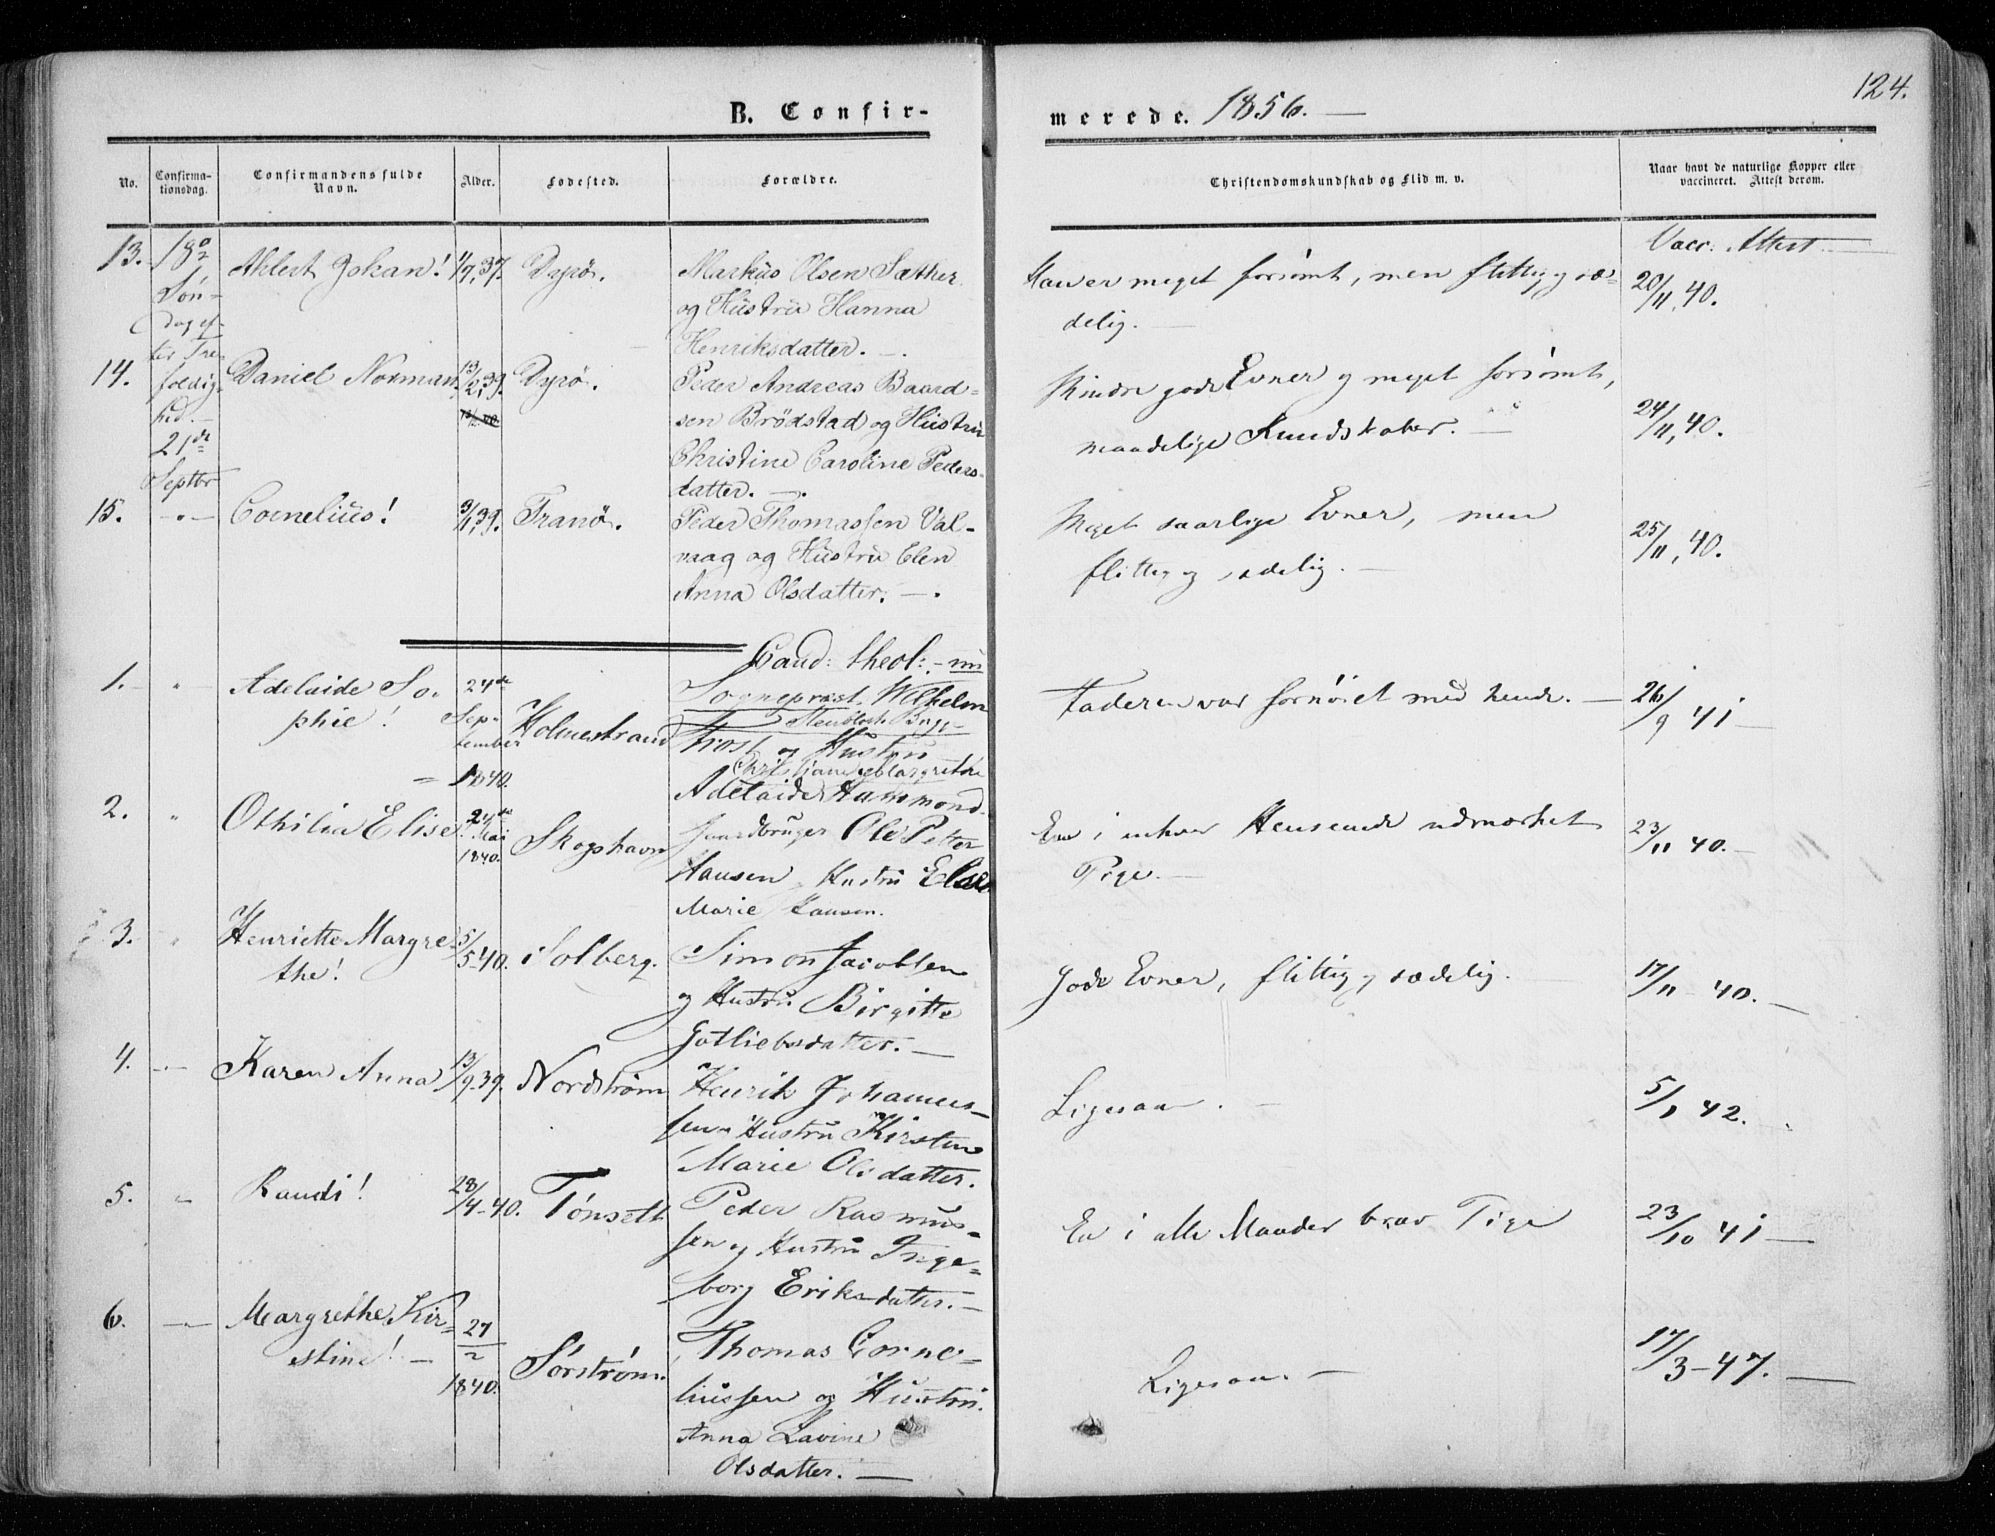 124.
B. Confir-
merede. 1856. —
No.
Confirma-
tionsdag.
Confirmandens fulde
Navn.
Alder.
Fødested.
Forældre.
Christendomskundskab og Flid m. v.
Naar havt de naturlige Kopper eller
vaccineret. Attest derom.
Vacc. Attest
13.
18de
Søn-
dag ef-
ter Tre-
foldig-
hed. —
21de
Septbr
Ahlert Johan!
1/7, 37.
Dyrø.
Markus Olsen Sæther
og Hustru Hanna
Henriksdatter. —.
Har er meget forsømt, men flittig og sæ-
delig. —
20/11, 40.
14.
Daniel Norman
13/2, 39.
Dyrø.
Peder Andreas Baard-
sen Brödstad og Hustru
Christine Caroline Peders-
datter. —.
Mindre gode Evner og meget forsømt,
maadelige Kundskaber. —
24/11, 40.
15.
—"—
Cornelius!
3/1, 39.
Tranø.
Peder Thomassen Val-
vaag og Hustru Elen
Anna Olsdatter. —.
Meget saarlige Evner, men
flittig og sædelig. —
25/11, 40.
1. "
Adelaide So-
phie!
24de
Sep-
tember
1840.
Holmestrand
Cand: theol: - nu
Sogneprest Wilhelm
Frost og Hustru
Christiane Margrethe
Adelaide Hammond.
Faderen var fornøiet med hende. —
26/9 41 —
2. "
Othilia Elise
24de
Mai
1840.
Skogshavn
Gaardbruger Ole Petter
Hansen, Hustru Else
Marie Hansen.
En i enhver Henseende udmærket
Pige. —
23/11 40. —
3. "
Henriette Margre-
the!
5/5-40.
Solberg.
Simon Jacobsen
og Hustru Birgitte
Gotliebsdatter. —
Gode Evner, flittig, sædelig.
17/11 - 40. —
4. —"—
Karen Anna
13/9-39.
Nordstrøm
Henrik Johannes-
sen og Hustru Kirsten
Marie Olsdatter.
Ligesaa. —
5/1 42.
5. "
Randi!
28/4-40.
Tønsett
Peder Rasmus-
sen og Hustru Inge-
borg Eriksdatter. —
En i alle Maader brav Pige
23/10 41 —
6. —"—
Margrethe Kir-
stine! —
27/2
1840.
Sørstrøm.
Thomas Corne-
liussen og Hustru
Anna Lavine
Olsdatter. —
Ligesaa. —
17/3-47. —